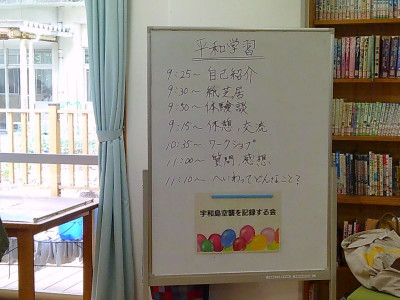 平和学習
9:25～ 自己紹介
9:30～ 紙芝居
9:50～ 体験談
9:15～ 休憩、交流
10:35～ ワークショプ
11:00～ 質問、感想
11:10～ へいわってどんなこと?
宇和島空襲を記録する会